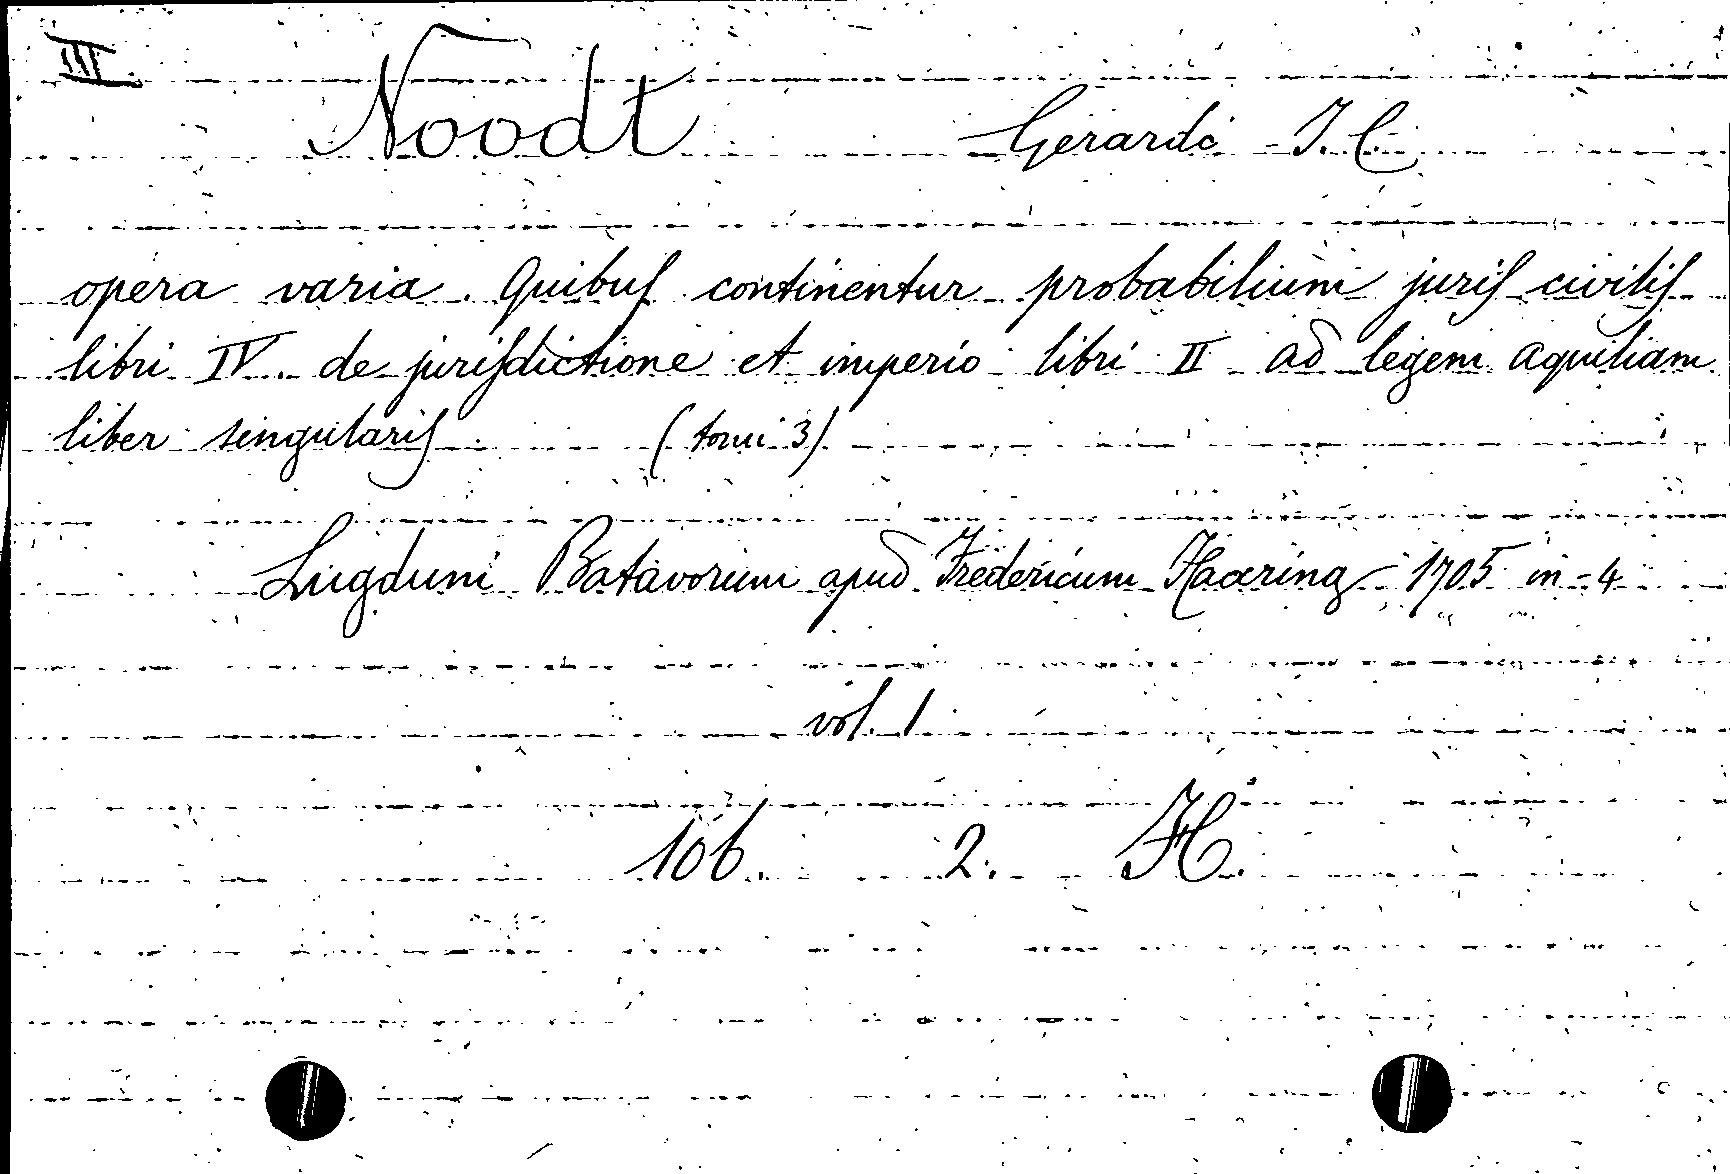 III.
Noodt Gerardi J. C.
opera varia. Quibus continentur probabilium juris civilis
libri IV. de jurisdictione et imperio libri II ad legem aquiliam
liber singularis (tomi 3)
Lugduni Batavorum apud Fredericum Haaring 1705 in-4
vol. 1
106. 2. H.